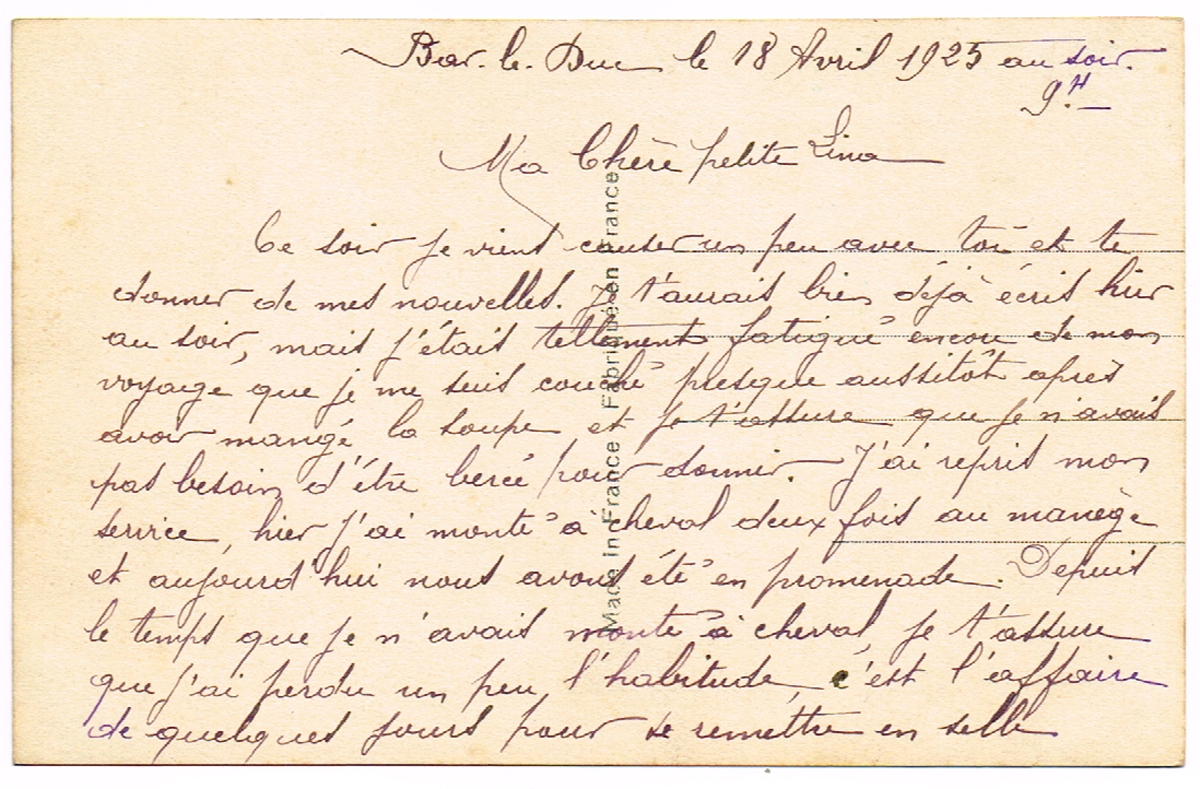 Bar-le-Duc le 18 Avril 1925 au soir.
9.H
Ma Chère petite Lina
Ce soir je vient causer un peu avec toi et te
donner de mes nouvelles. Je t'aurais bien déjà écris hier
au soir, mais j'était tellement fatigué encore de mon
voyage que je me suis couché presque aussitôt après
avoir mangé la soupe et je t'assure que je n'avais
pas besoin d'être bercé pour dormir. J'ai repris mon
service, hier j'ai monté à cheval deux fois au manège
et aujourd'hui nous avons été en promenade. Depuis
le temps que je n'avais monté à cheval, je t'assure
que j'ai perdu un peu l'habitude, c'est l'affaire
de quelques jours pour se remettre en selle
Made in France Fabriqué en France